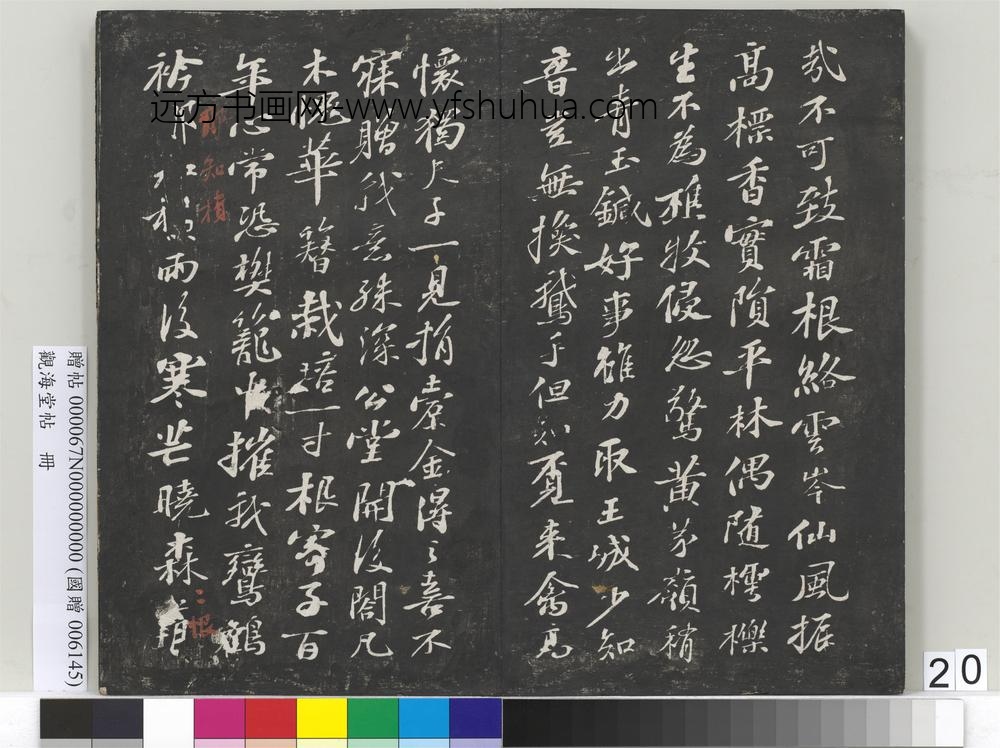 哉不可致霜根絡雲岑仙風振
高標香實隕平林偶隨樗櫟
生不為樵牧侵忽驚黃茅嶺稍
出青玉鍼好事雖力取王城少知
音豈無換鵝手但知覓來禽高
懷獨夫子一見捐橐金得之喜不
寐贈我意殊深公堂開後閣凡
木愧華簪栽培一寸根寄子百
年心常恐樊籠中摧我鸞鶴
衿誰知積雨後寒芒曉森〻恨
知積
〻恨
远方书画网-www.yfshuhua.com
贈帖 000067N000000000 (國贈 006145)
觀海堂帖 冊
20